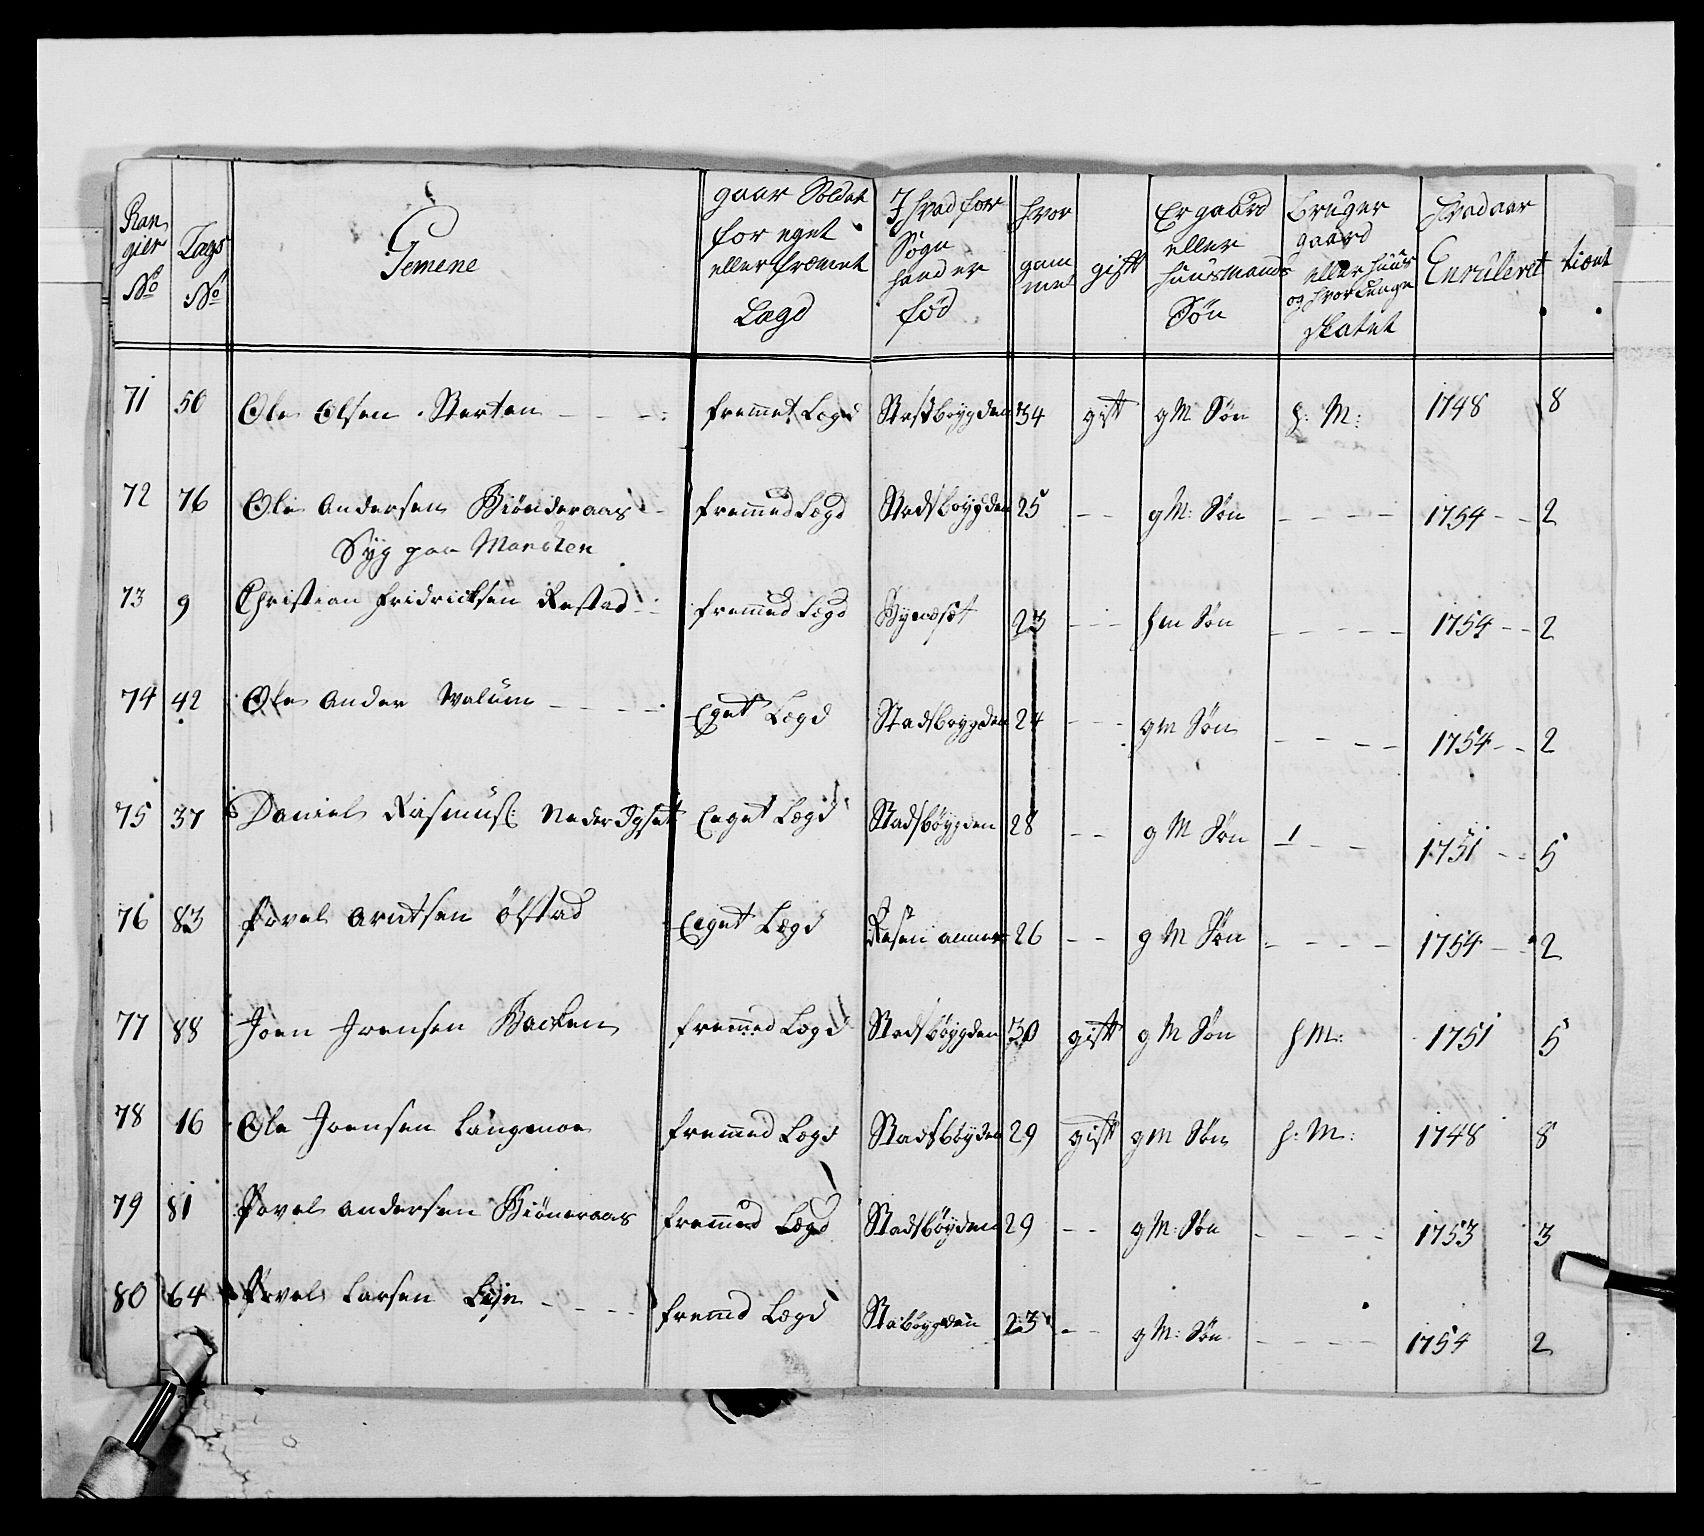 Ran
gier
No
Lags
No
Gemene
gaar Soldat
for eget
eller fremet
Lægd
I hvad for
Sogn
hand er
fød
hvor
gam
mel
gift
Er gaard
eller
huusmands
Søn
Bruger
gaard
eller huus
og hvor lenge
skatet
hvad aar
Enrulleret
tient
71 50 Ole Olsen Berten - - - fremet Lægd Stadsboygden 34 gift gM Søn h: M: 1748 8
72 76 Ole Andersen Biønderaas - fremmed Lægd Stadsboygden 25 - - gM: Søn - - - - 1754 - - 2
Syg paa Marchen
73 9 Christian Fridricksen Restad - - fremmed Lægd Bynæset 23 - - - hm Søn - - - - - 1754 - - 2
74 42 Ole Ander Walum - - - - Eget Lægd Stadsboygden 24 - - - gm Søn - - - - 1754 - - 2
75 37 Daniel Rasmus: Neder Igset Eeget Lægd Stadsbøygden 28 - - g M Søn 1 - - 1751 - - 5
76 83 Povel Arntsen Ølstad Eeget Lægd Risen annex 26 - - g M Søn - - - - 1754 - - 2
77 88 Joen Joensen Backen fremmed Lægd Stadsbøygden 30 gift g M Søn h M: 1751 5
78 16 Ole Joensen Langmoe fremmed Lægd Stadsbøyden 29 gift gm Søn h: M: 1748 8
79 81 Povel Andersen Biøneraas fremmed Lægd Stadsbøyden 29 - - gM: Søn - - - - 1753 3
80 64 Povel Larsen Lein - - - - fremd Lægd Stabøygden 23 - - gM: Søn - - - - 1754 2